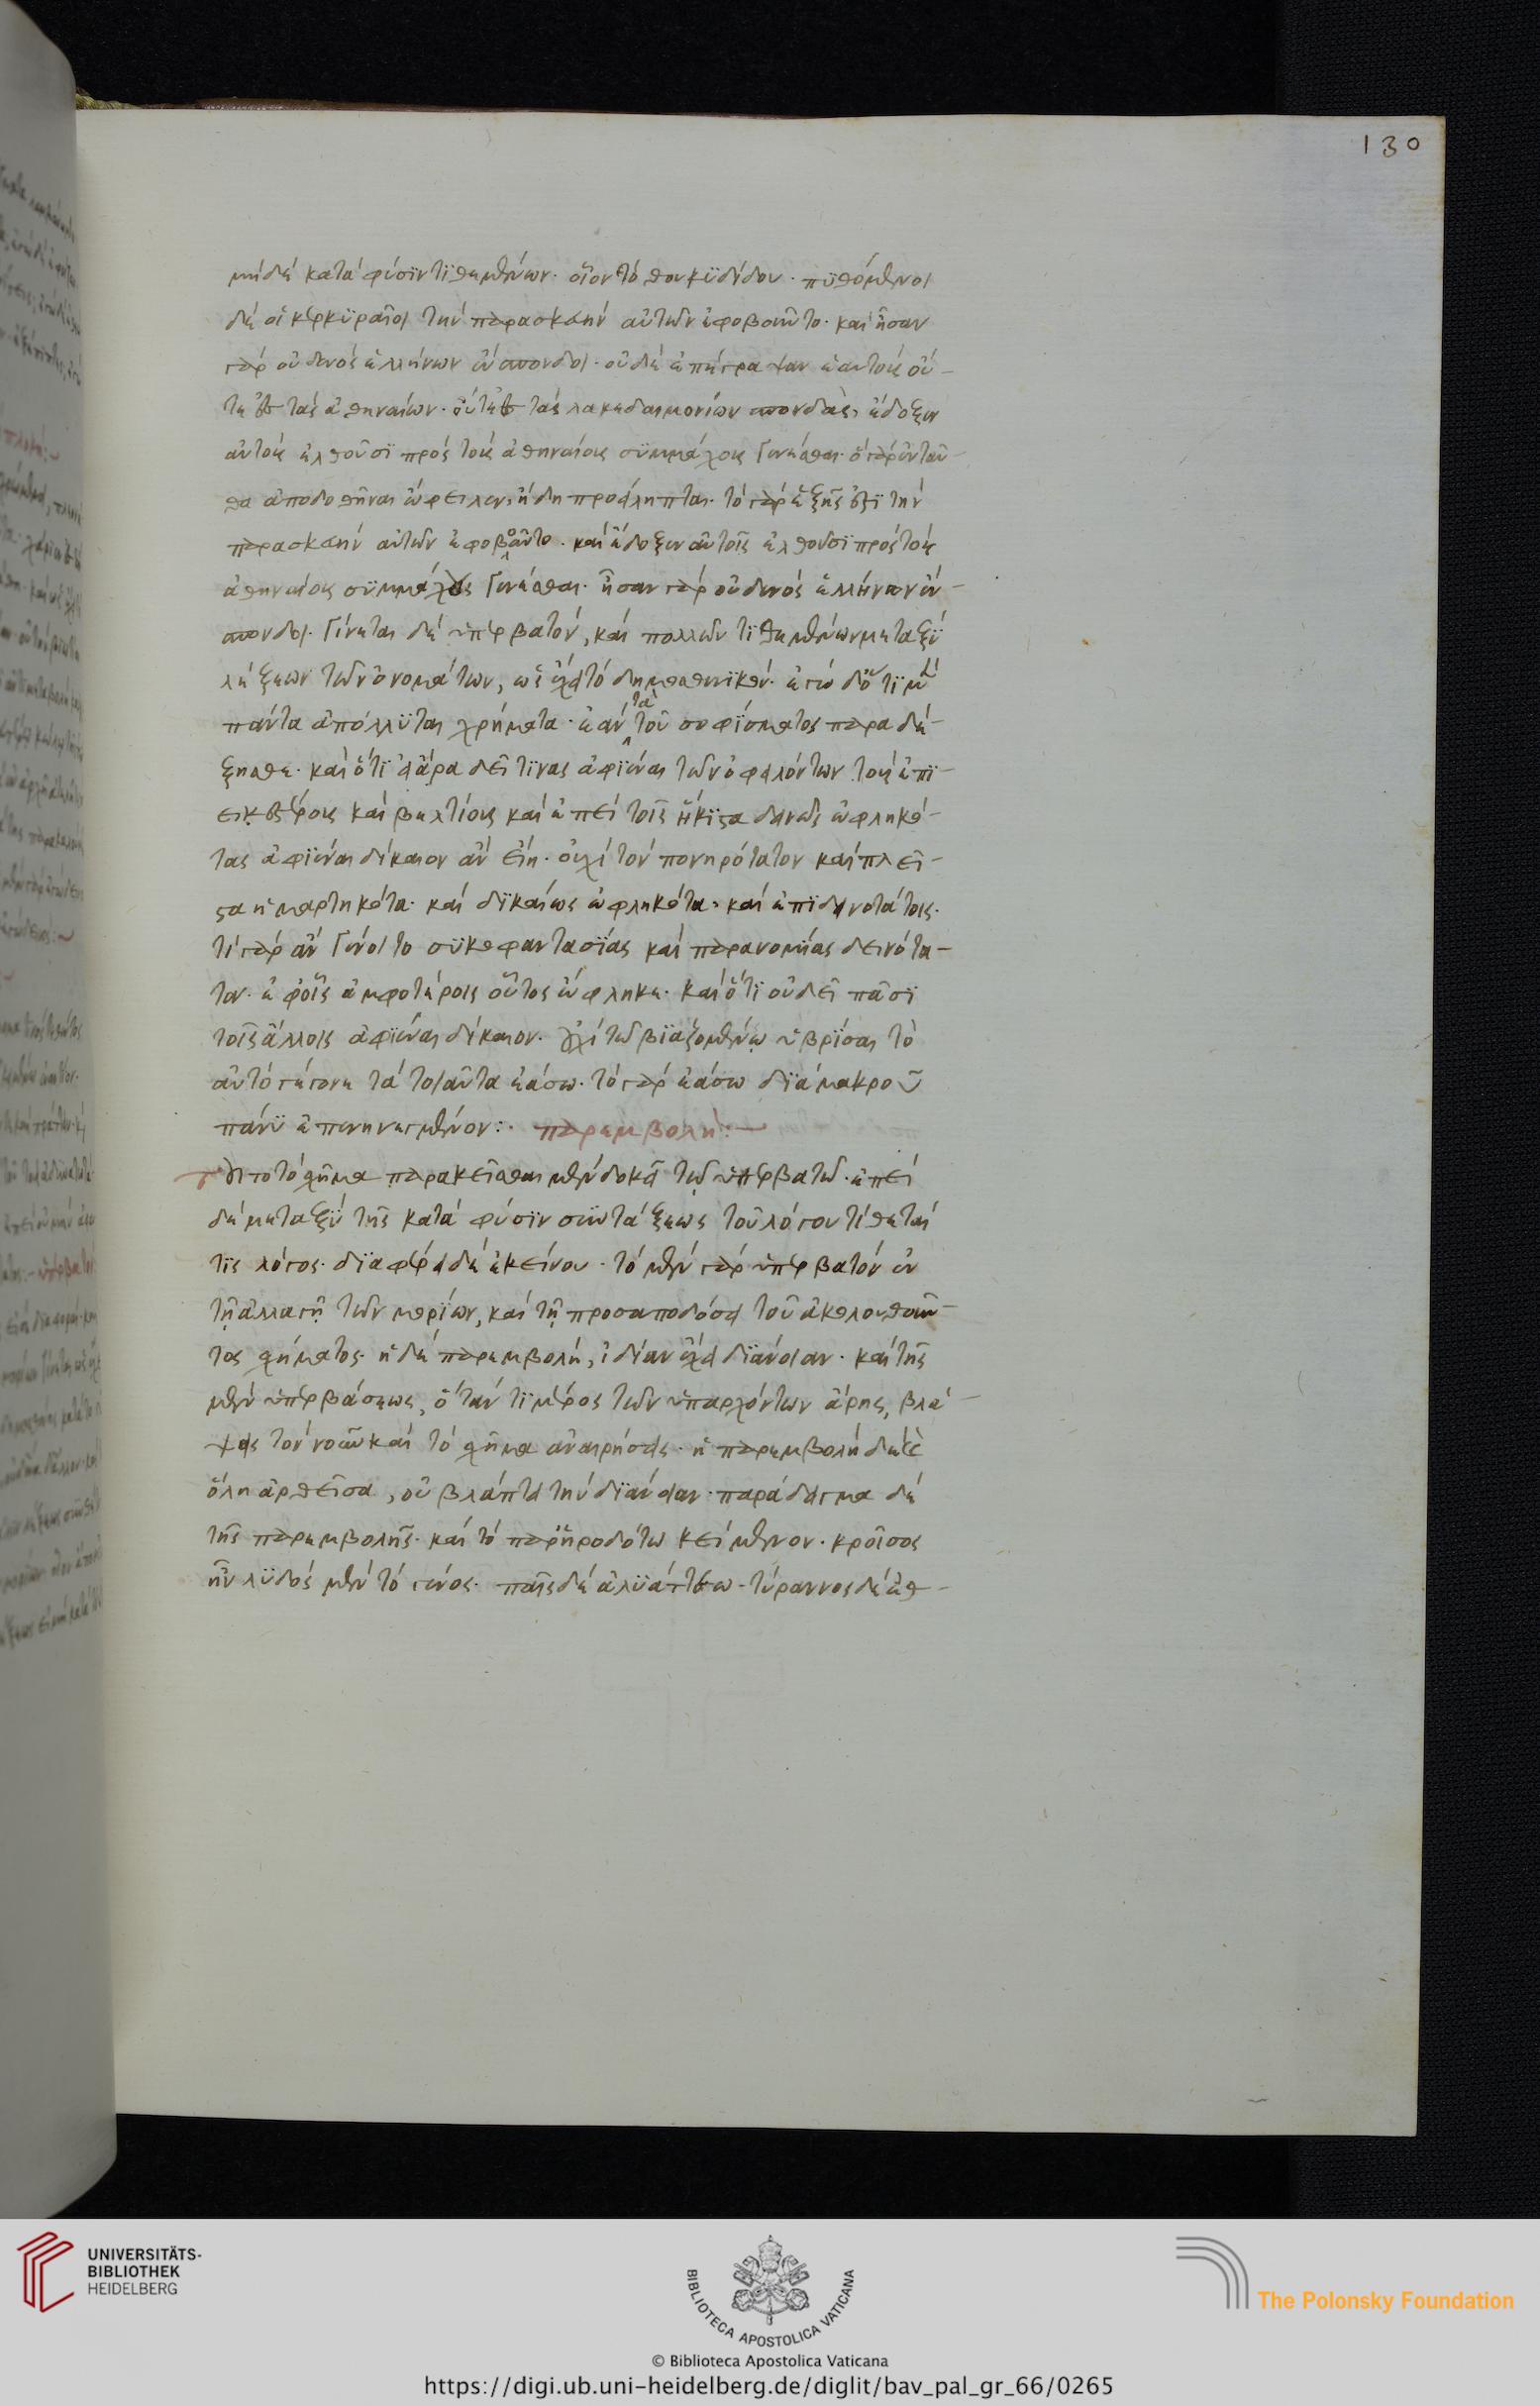 130
μηδὲ κατὰ φύσϊν τϊθεμένων. οἷον τὸ θουκϋδίδου. πϋθόμενοι
δὲ οἱ κερκϋραῖοι τὴν παρασκευὴν αὐτῶν ἐφοβοῦντο. καὶ ἦσαν
γὰρ οὐδενὸς ἑλλήνων ἔνσπονδοι. οὐδὲ ἐπεγράψαν ἑαυτοὺς οὔ-
τε ἐς τὰς ἀθηναίων. οὔτε ἐς τὰς λακεδαιμονίων σπονδὰς, ἔδοξεν
αὐτοῖς ἐλθοῦσϊ πρὸς τοὺς ἀθηναίους σϋμμάχους γενέσθαι. ὃ γὰρ ἐνταῦ-
θα ἀποδοθῆναι ὤφειλεν, ἤδη προείληπται. τὸ γὰρ ἑξῆς ἐστϊ τὴν
παρασκευὴν αὐτῶν ἐφοβοῦντο. καὶ ἔδοξεν αὐτοῖς ἐλθοῦσϊ πρὸς τοὺς
ἀθηναίους σϋμμάχους γενέσθαι. ἦσαν γὰρ οὐδενὸς ἑλλήνων ἔν-
σπονδοι. γίνεται δὲ ὑπερβατὸν, καὶ πολλῶν τϊθεμένων μεταξϋ
λέξεων τῶν ὀνομάτων, ὡς ἔχει τὸ δημοσθενϊκόν. ἐγὼ δ' ὅτϊ μὲν
πάντα ἀπόλλϋται χρήματα. ἐὰν τὰ τοῦ σοφίσματος παραδέ-
ξησθε. καὶ ὅτϊ εἰ ἄρα δεῖ τϊνας ἀφϊέναι τῶν ὀφειλόντων τοὺς ἐπϊ-
εικεστέρους καὶ βελτίους καὶ ἐπεὶ τοῖς ἥκϊστα δεινῶς ὠφληκό-
τας ἀφϊέναι δίκαιον ἂν εἴη. οὐχὶ τὸν πονηρότατον καὶ πλεῖ-
στα ἡμαρτηκότα. καὶ δϊκαίως ὠφληκότα. καὶ ἐπϊ δεινοτάτοις.
τί γὰρ ἂν γένοιτο σϋκοφαντασϊας καὶ παρανομίας δεινότα-
τον. ἐφ' οἷς ἀμφοτέροις οὗτος ὤφληκε. καὶ ὅτϊ οὐδεῖ πᾶσϊ
τοῖς ἄλλοις ἀφϊέναι δίκαιον. οὐχὶ τῷ βϊαζομένῳ ὑβρίσαι τὸ
αὐτὸ γέγονε τὰ τοιαῦτα ἐάσω. τὸ γὰρ ἐάσω δϊὰ μακροῦ
πάνϋ ἐπενηνεγμένον:. παρεμβολή:—
Τοῦτο τὸ σχῆμα παρακεῖσθαι μὲν δοκεῖ τῷ ὑπερβατῷ. ἐπεὶ
δὲ μεταξϋ τῆς κατὰ φύσϊν συντάξεως τοῦ λόγου τίθεταί
τϊς λόγος. δϊαφέρει δὲ ἐκείνου. τὸ μὲν γὰρ ὑπερβατὸν ἐν
τῇ ἀλλαγῇ τῶν μορίων, καὶ τῇ προσαποδόσει τοῦ ἀκολουθοῦν-
τος σχήματος. ἡ δὲ παρεμβολὴ, ἰδίαν ἔχει δϊάνοιαν. καὶ τῆς
μὲν ὑπερβάσεως, ὅταν τϊ μέρος τῶν ὑπαρχόντων ἄρης, βλά-
ψεις τὸν νοῦν καὶ τὸ σχῆμα ἀναιρήσεις. ἡ παρεμβολὴ δὲ
ὅλη ἀρθεῖσα, οὐ βλάπτει τὴν δϊάνοιαν. παράδειγμα δὲ
τῆς παρεμβολῆς. καὶ τὸ παρ' ἡροδότω κείμενον. κροῖσος
ἦν λϋδὸς μὲν τὸ γένος. παῖς δὲ ἀλϋάττεω. τύραννος δὲ ἐθ-
UNIVERSITÄTS-
BIBLIOTHEK
HEIDELBERG
BIBLIOTECA APOSTOLICA VATICANA
The Polonsky Foundation
© Biblioteca Apostolica Vaticana
https://digi.ub.uni-heidelberg.de/diglit/bav_pal_gr_66/0265